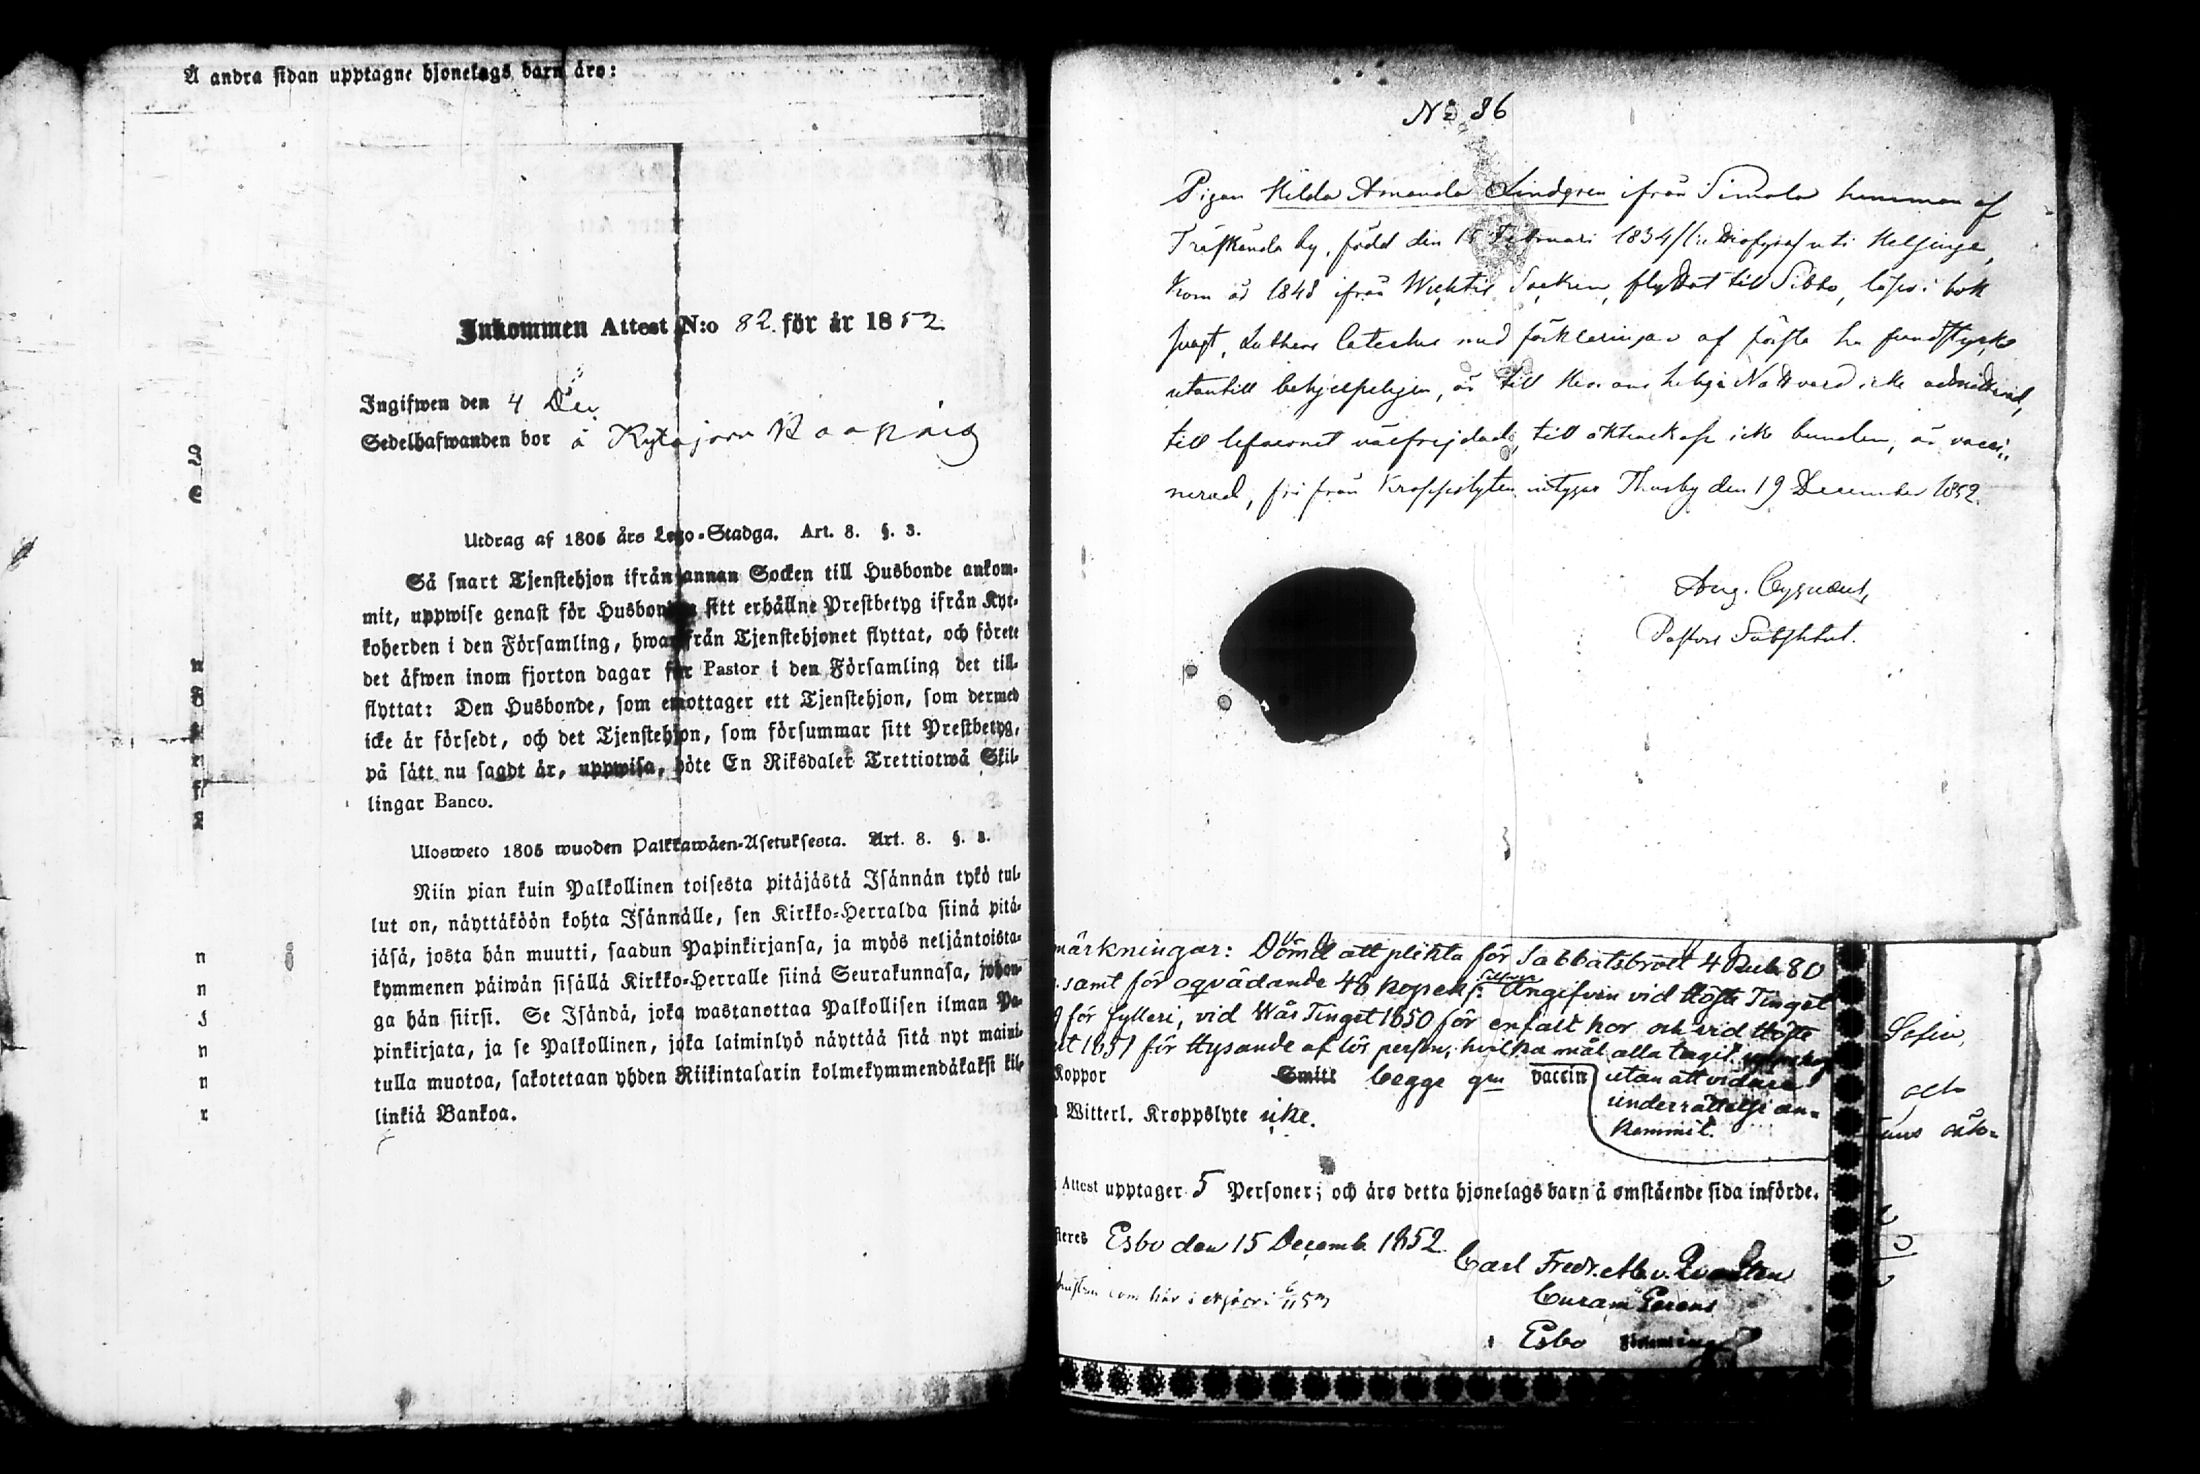 Å andra sidan upptagne hjonelags barn äro:
Inkommen Attest N:o 82. för år 1852
Ingifwen den 4 Dec
Sedelhafwanden bor å Kytäjärvi
Utdrag af 1805 års Lego-Stadga. Art. 8. §. 3.
Så snart Tjenstehjon ifrån annan Socken till Husbonde ankom-
mit, uppwise genast för Husbonden sitt erhållne Prestbetyg ifrån Kyr-
koherden i den Församling, hwarifrån Tjenstehjonet flyttat, och förete
det äfwen inom fjorton dagar för Pastor i den Församling det till-
flyttat: Den Husbonde, som emottager ett Tjenstehjon, som dermed
icke är försedt, och det Tjenstehjon, som försummar sitt Prestbetyg,
på sätt nu sagdt är, uppwisa, böte En Riksdaler Trettiotwå Skil-
lingar Banco.
Ulosweto 1805 wuoden Palkkawäen-Asetuksesta. Art. 8. §. 3.
Niin pian kuin Palkollinen toisesta pitäjästä Isännän tykö tul-
lut on, näyttäköön kohta Isännälle, sen Kirkko-Herralda siinä pitä-
jäsä, josta hän muutti, saadun Papinkirjansa, ja myös neljäntoista-
kymmenen päiwän sisällä Kirkko-Herralle siinä Seurakunnasa, johon-
ga hän siirsi. Se Isändä, joka wastanottaa Palkollisen ilman Pa-
pinkirjata, ja se Palkollinen, joka laiminlyö näyttää sitä nyt maini-
tulla muotoa, sakotetaan yhden Riikintalarin kolmekymmendäkaksi kil-
linkiä Bankoa.
No 86
Pigan Hilda Amanda Lindgren ifrån Simola hemman af
Träskända by, född den 15 Februari 1834 uti Helsinge,
kom år 1848 ifrån Wichtis Socken, flyttat till Sibbo, läser i bok
svagt, Luthers Cateches med förklaringar af första hufvudstycke
utantill behjelpeligen, är till Herrans heliga Nattvard icke admitterad,
till lefvernet välfrejdad, till äktenskap icke bunden, är vacci-
nerad, fri från Kroppslyten intygar Thusby den 19 December 1852.
Aug. Cygnæus,
Pastors Substitut.
märkningar: Dömd att plikta för Sabbatsbrott 4 Rub. 80
samt för oqvädande 48 kopek Angifven vid Höste Tinget
för fylleri, vid Wår Tinget 1850 för enfalt hor och vid Höste
et 1851 för Hysande af lös person, hvilka mål alla tagit
utan att vidare
underrättelse an-
kommit.
Koppor Smitt begge gm vaccin
Witterl. Kroppslyte icke.
Attest upptager 5 Personer; och äro detta hjonelags barn å omstående sida införde.
steres Esbo den 15 Decemb. 1852.
Carl Fredr.
Curam Gerens
i Esbo Församling
Sofia,
och